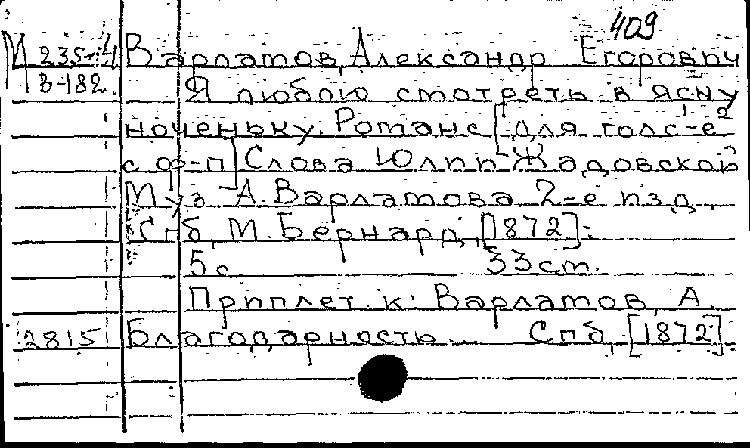 409
М 235-4 Варламов, Александр Егорович
В-182 Я люблю смотреть в ясну
ноченьку. Романс [для голс-е
с ф-п] Слова Юлии Жадовской
Муз. А. Варламова 2-е изд.
Спб, М. Бернард, [1872].
5с 33 см.
Приплет. к: Варламов, А.
2815 Благодарность. Спб, [1872].